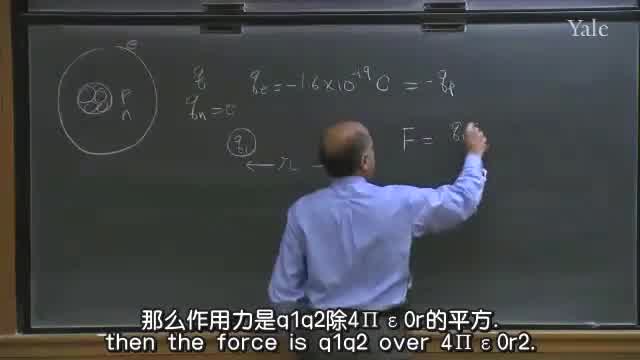 Yale
e
q qe = -1.6 × 10⁻¹⁹ C = -qp
p
n
qn = 0
q1
F = q1
那么作用力是q1q2除4Π ε0r的平方.
then the force is q1q2 over 4Π ε0r2.